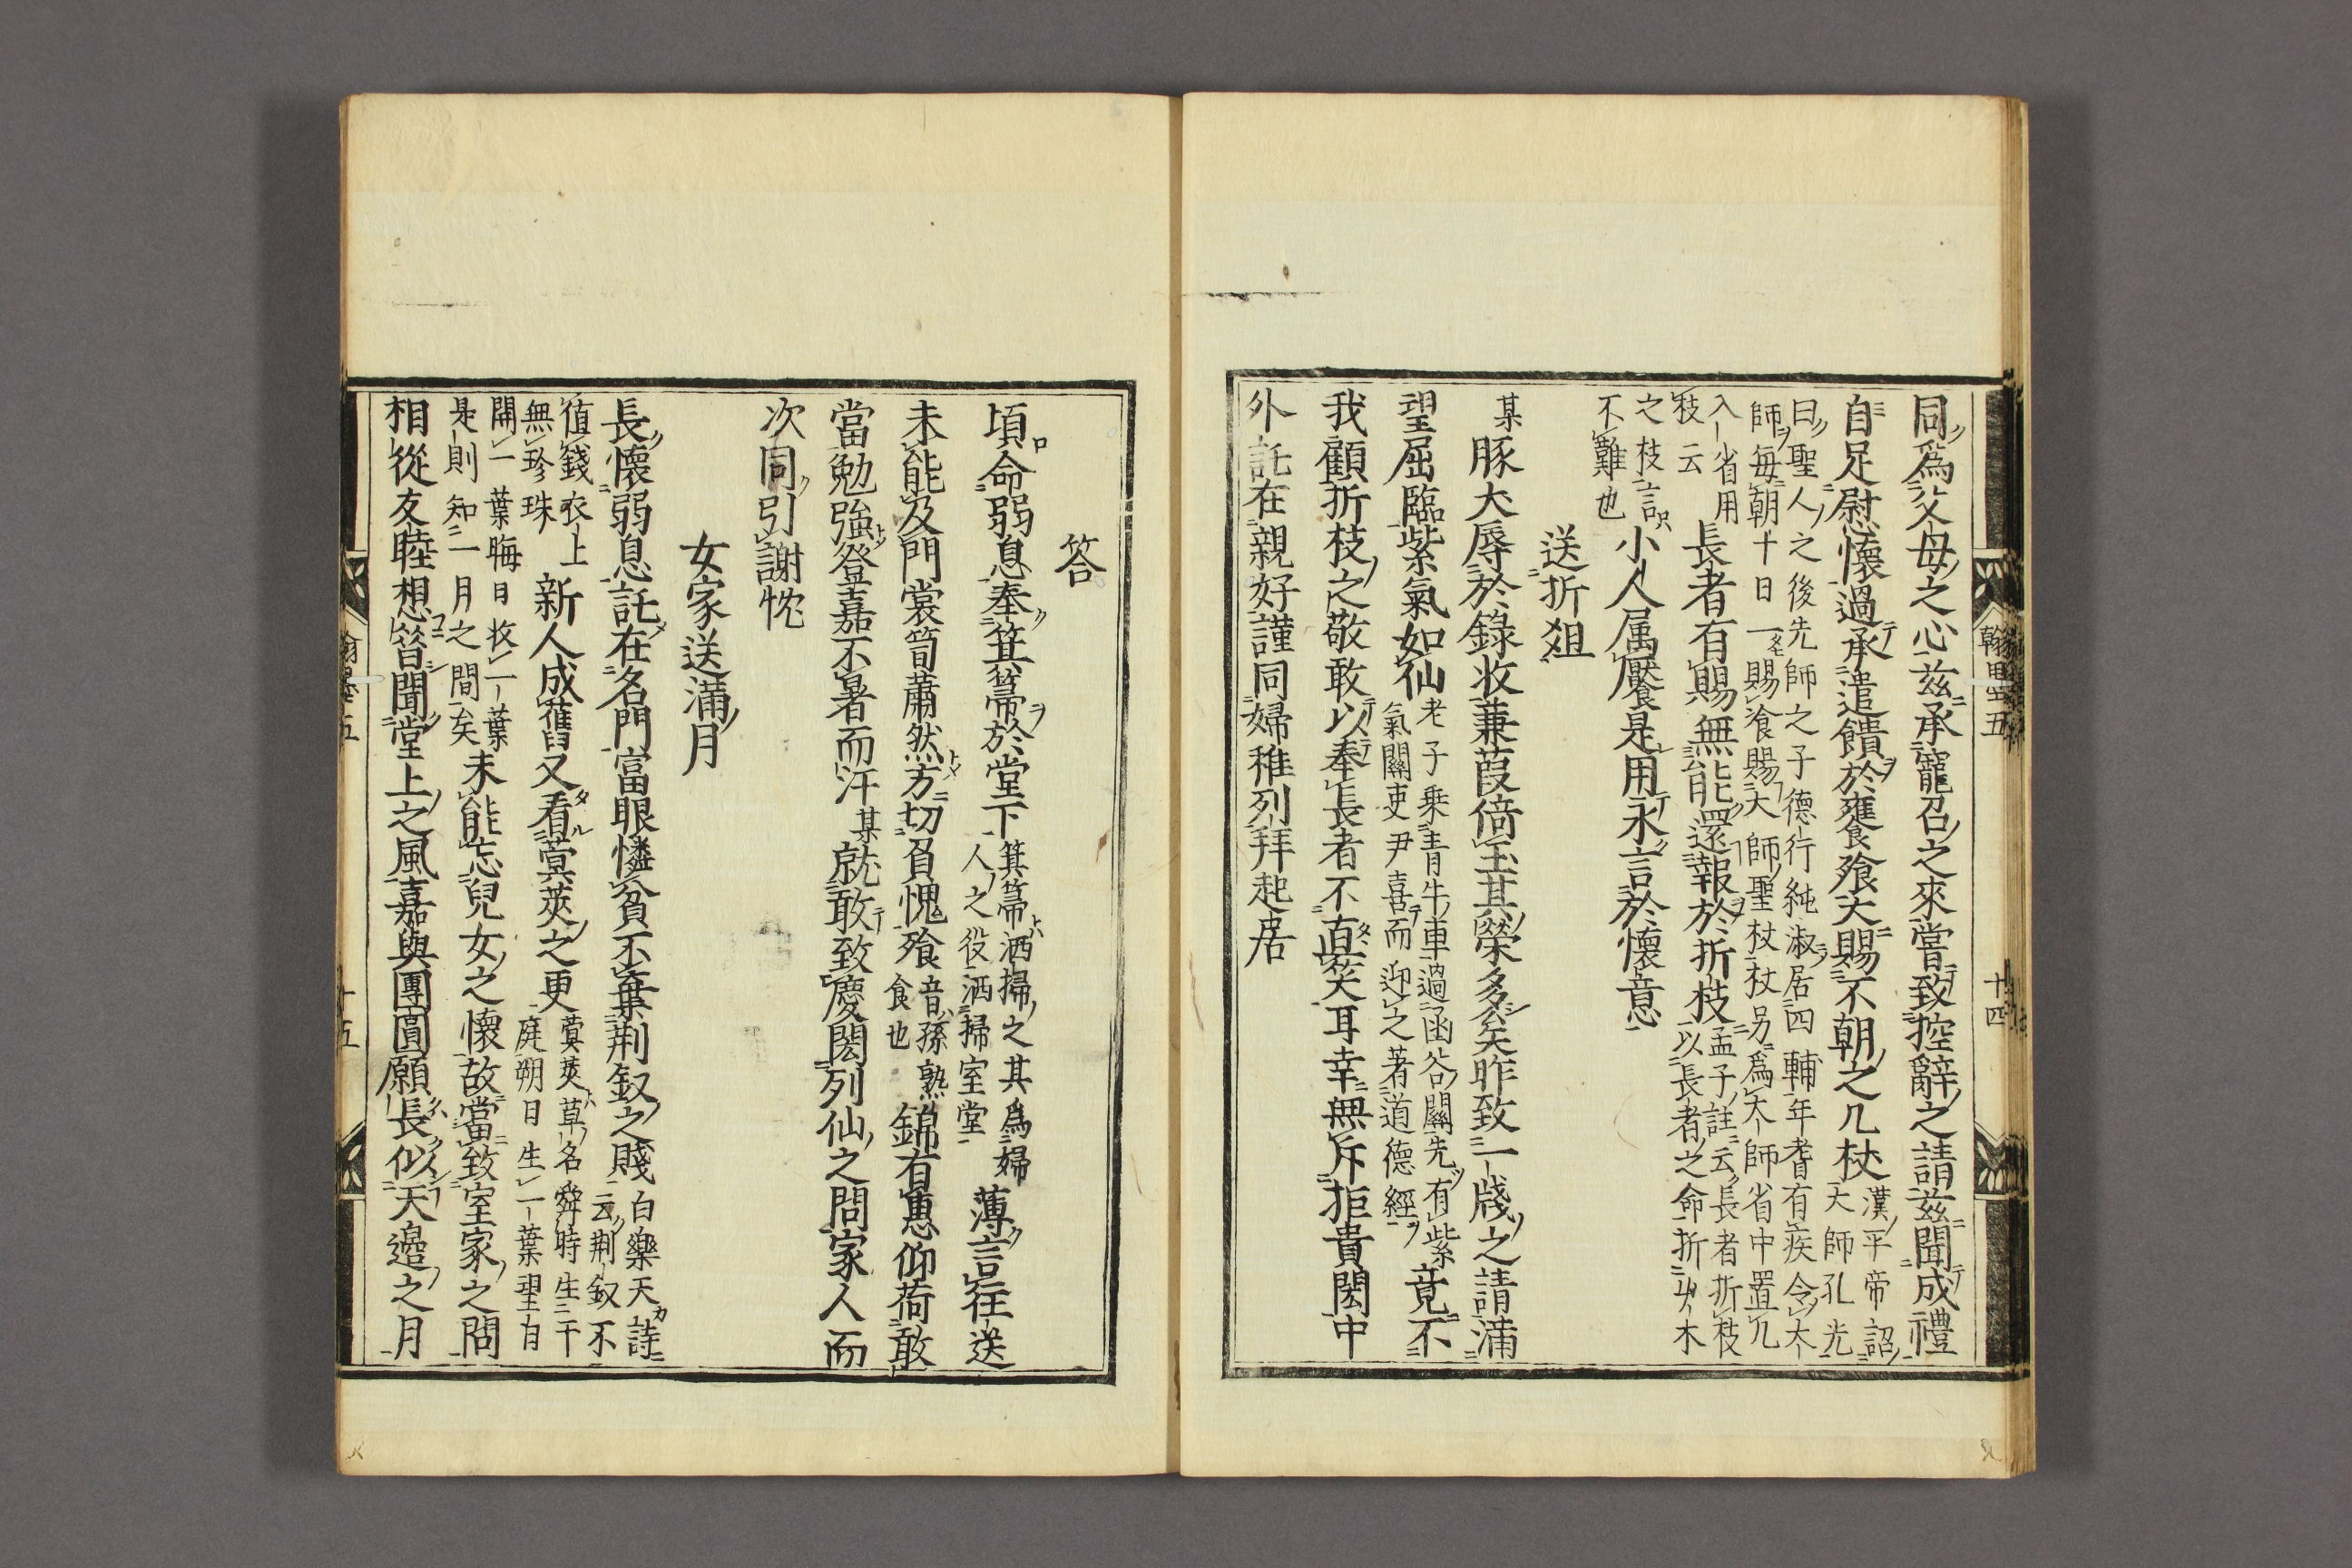 同爲父母之心兹承寵召之來嘗致控辭之請兹聞成禮
自足慰懷過承遣饋於饔飧夫賜不朝之几杖
漢平帝詔
太師孔光
曰聖人之後先師之子德行純淑居四輔年耆有疾令太
師每朝十日一賜飡賜太師靈杖杖另爲太師省中置几
入省用
杖云
長者有賜無能還報於折枝
孟子註云長者折枝
以長者之命折少木
之枝言
不難也
小人属饜是用永言於懷意
送折爼
某豚犬辱於錄收蒹葭倚玉其榮多矣昨致一牋之請滿
望屈臨紫氣如仙
老子乗青牛車過函谷關先有紫
氣關吏尹喜而迎之著道德經
竟不
我顧折枝之敬敢以奉長者不直笑耳幸無斥拒貴閎中
外託在親好謹同婦稚列拜起居
翰墨五
十四
答
頃命弱息奉箕箒於堂下
箕箒洒掃之其爲婦
人之役洒掃室堂
薄言往送
未能及門裳笥蕭然方切負愧飧
音孫熟
食也
錦有惠仰荷敢
當勉強登嘉不暑而汗某就敢致慶閎列仙之問家人而
次同引謝忱
女家送滿月
長懷弱息託在名門當眼憐貧不棄荆釵之賤
白樂天詩
云荆釵不
值錢衣上
無珍珠
新人成舊又看蓂莢之更
蓂莢草名舜時生于
庭朔日生一葉望日
開一葉晦日枚一葉
是則知一月之間矣
未能忘兒女之懷故當致室家之問
相從友睦想筓聞堂上之風嘉與團圓願長似天邉之月
翰墨五
十五